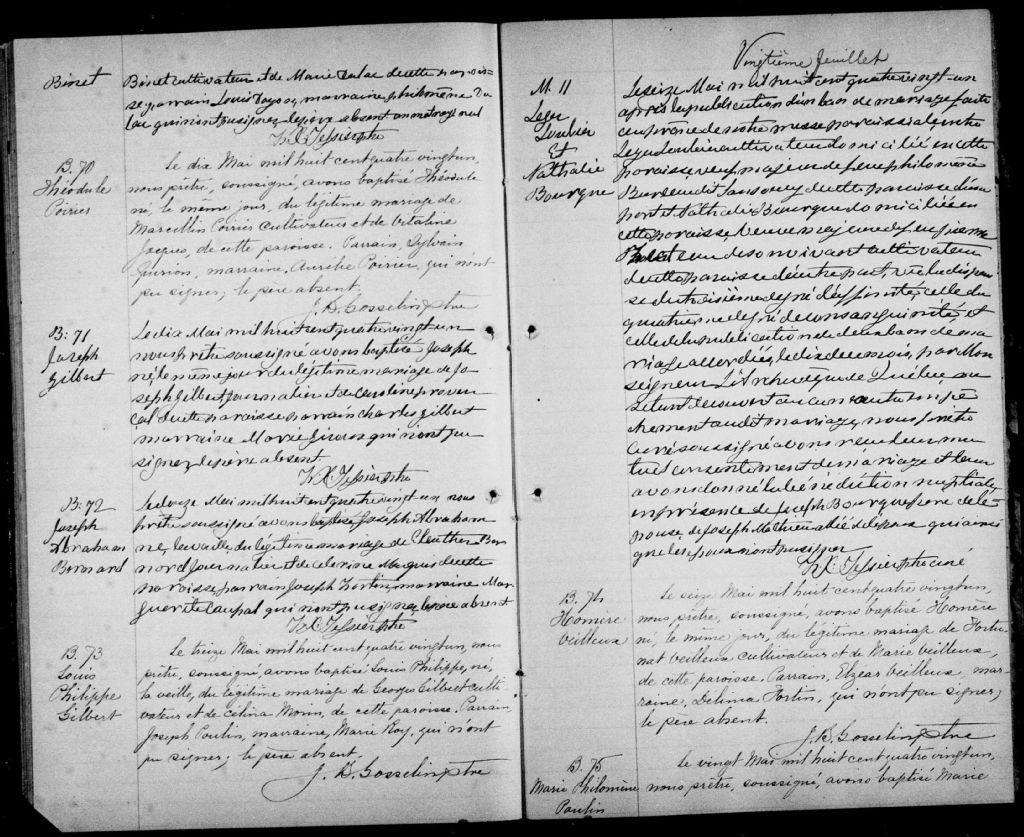 Binet
Binet cultivateur et de Marie Dulac de cette parois-
se, parrain Louis marraine, philomène Du
lac qui n'ont pu signer, le père absent
Tessier ptre
B. 70
Théodule
Poirier
Le dix Mai mil huit cent quatre vingt un,
nous prêtre, soussigné, avons baptisé Théodule
né, le même jour, du légitime mariage de
Marcellin Poirier cultivateur et de Vitaline
Jacques, de cette paroisse. Parrain, Sylvain
Guirion, marraine, Aurélie Poirier, qui n'ont
pu signer; le père absent.
J. B. Gosselin, Ptre
B: 71
Joseph
Gilbert
Le dix Mai mil huit cent quatre vingt un
nous prêtre soussigné avons baptisé Joseph
né le même jour du légitime mariage de Jo
seph Gilbert journalier et de Caroline proven
cal de cette paroisse parrain Charles Gilbert
marraine Marie qui n'ont pu
signer, le père absent
Tessier ptre
B: 72
Joseph
Abraham
Bernard
Le douze Mai mil huit cent quatre vingt un, nous
prêtre soussigné avons baptisé Joseph Abraham
né, la veille, du légitime mariage de Ber
nard journalier et de Célerine Marquis de cette
paroisse, parrain Joseph Fortin, marraine Mar
guerite qui n'ont pu signer, le père absent
Tessier ptre
B. 73
Louis
Philippe
Gilbert
Le treize Mai mil huit cent quatre vingt un, nous
prêtre, soussigné, avons baptisé Louis Philippe, né,
la veille, du légitime mariage de Georges Gilbert culti
vateur et de Célina Morin, de cette paroisse. Parrain,
Joseph Poulin, marraine, Marie Roy, qui n'ont
pu signer; le père absent.
J. B. Gosselin, Ptre
Vingtième feuillet
M. 11
Leger
Poulin
Et
Nathalie
Bourque
Le seize Mai mil huit cent quatre vingt-un
après la publication d'un ban de mariage faite
au prône de notre messe paroissiale, entre
Leger Poulin cultivateur domicilié en cette
paroisse veuf majeur de feue philomène
de cette paroisse d'une
part et Nathalie Bourque domiciliée en
cette paroisse, veuve majeure de feu pierre
en son vivant cultivateur
de cette paroisse d'autre part, vu la dispen
se du troisième degré d'affinité, celle du
quatrième degré de consanguinité, et
celle de la publication de deux bans de ma
riage accordées, le dix de ce mois, par Mon
seigneur L'Archevêque de Québec, ne
s'étant découvert aucun autre empê
chement au dit mariage, nous, prêtre
curé soussigné avons reçu leur mu
tuel consentement de mariage et leur
avons donné la bénédiction nuptiale,
en présence de Joseph Bourque père de l'é
pouse, de Joseph Mathieu de l'époux qui ainsi
que les époux n'ont pu signer
Tessier ptre curé
B. 74
Homère
Veilleux
Le seize Mai mil huit cent quatre vingt un,
nous, prêtre, soussigné, avons baptisé Homère
né, le même jour, du légitime mariage de Fortu
nat Veilleux cultivateur et de Marie Veilleux,
de cette paroisse. Parrain, Elzéar Veilleux, mar
raine, Délima Fortin, qui n'ont pu signer;
le père absent.
J. B. Gosselin, Ptre
B. 75
Marie Philomène
Poulin
Le vingt Mai mil huit cent quatre vingt un,
nous, prêtre, soussigné, avons baptisé Marie